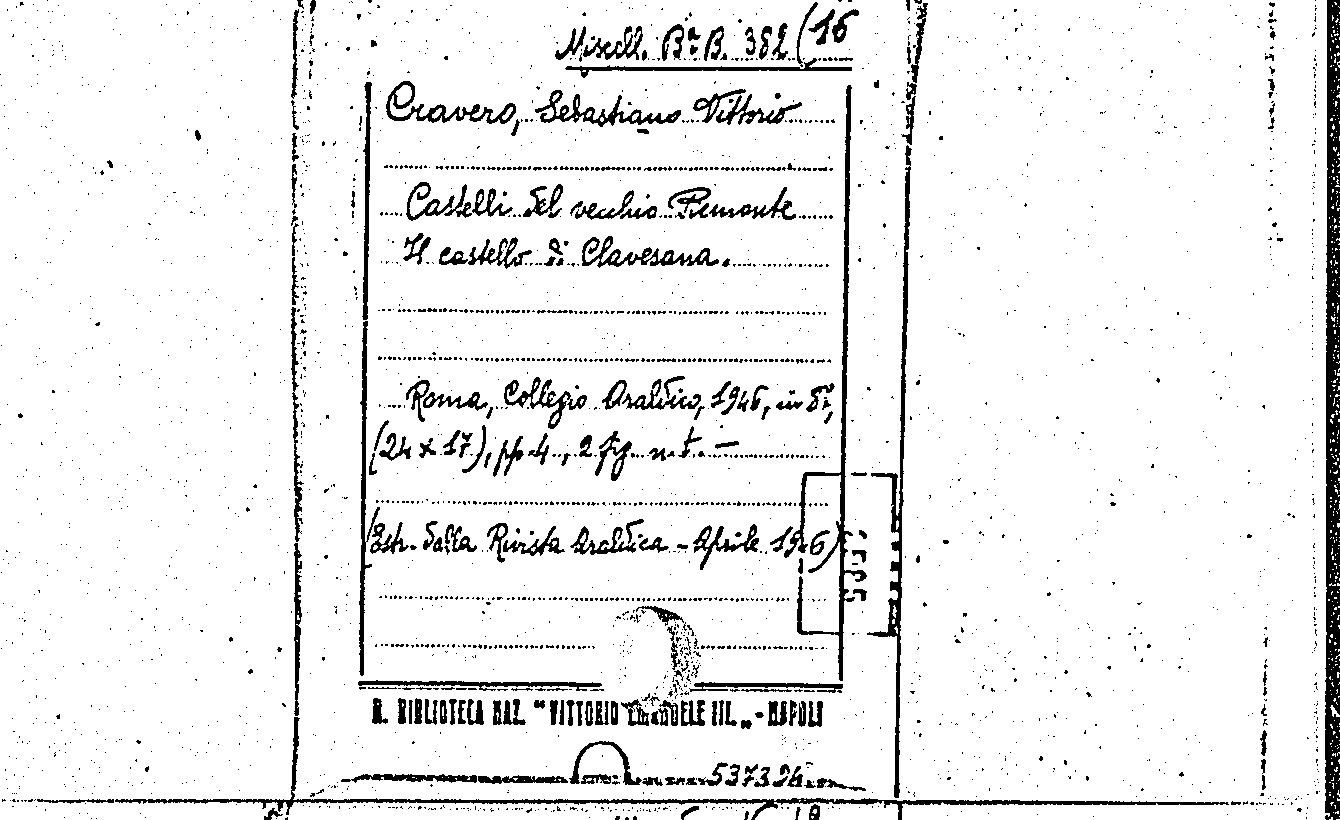 Miscell. Bᵗᵃ B. 382 (16
Cravero, Sebastiano Vittorio
Castelli del vecchio Piemonte
Il castello di Clavesana.
Roma, Collegio Araldico, 1946, in 8°,
(24 x 17), pp. 4, 2 fig. n. t. —
(Estr. dalla Rivista Araldica - Aprile 1946)
R. BIBLIOTECA NAZ. "VITTORIO EMANUELE III." - NAPOLI
537324